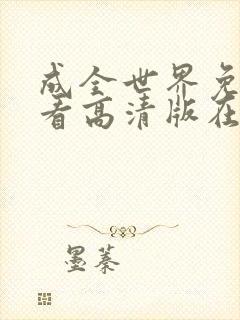 成全世界免
看高清版在
墨蓁